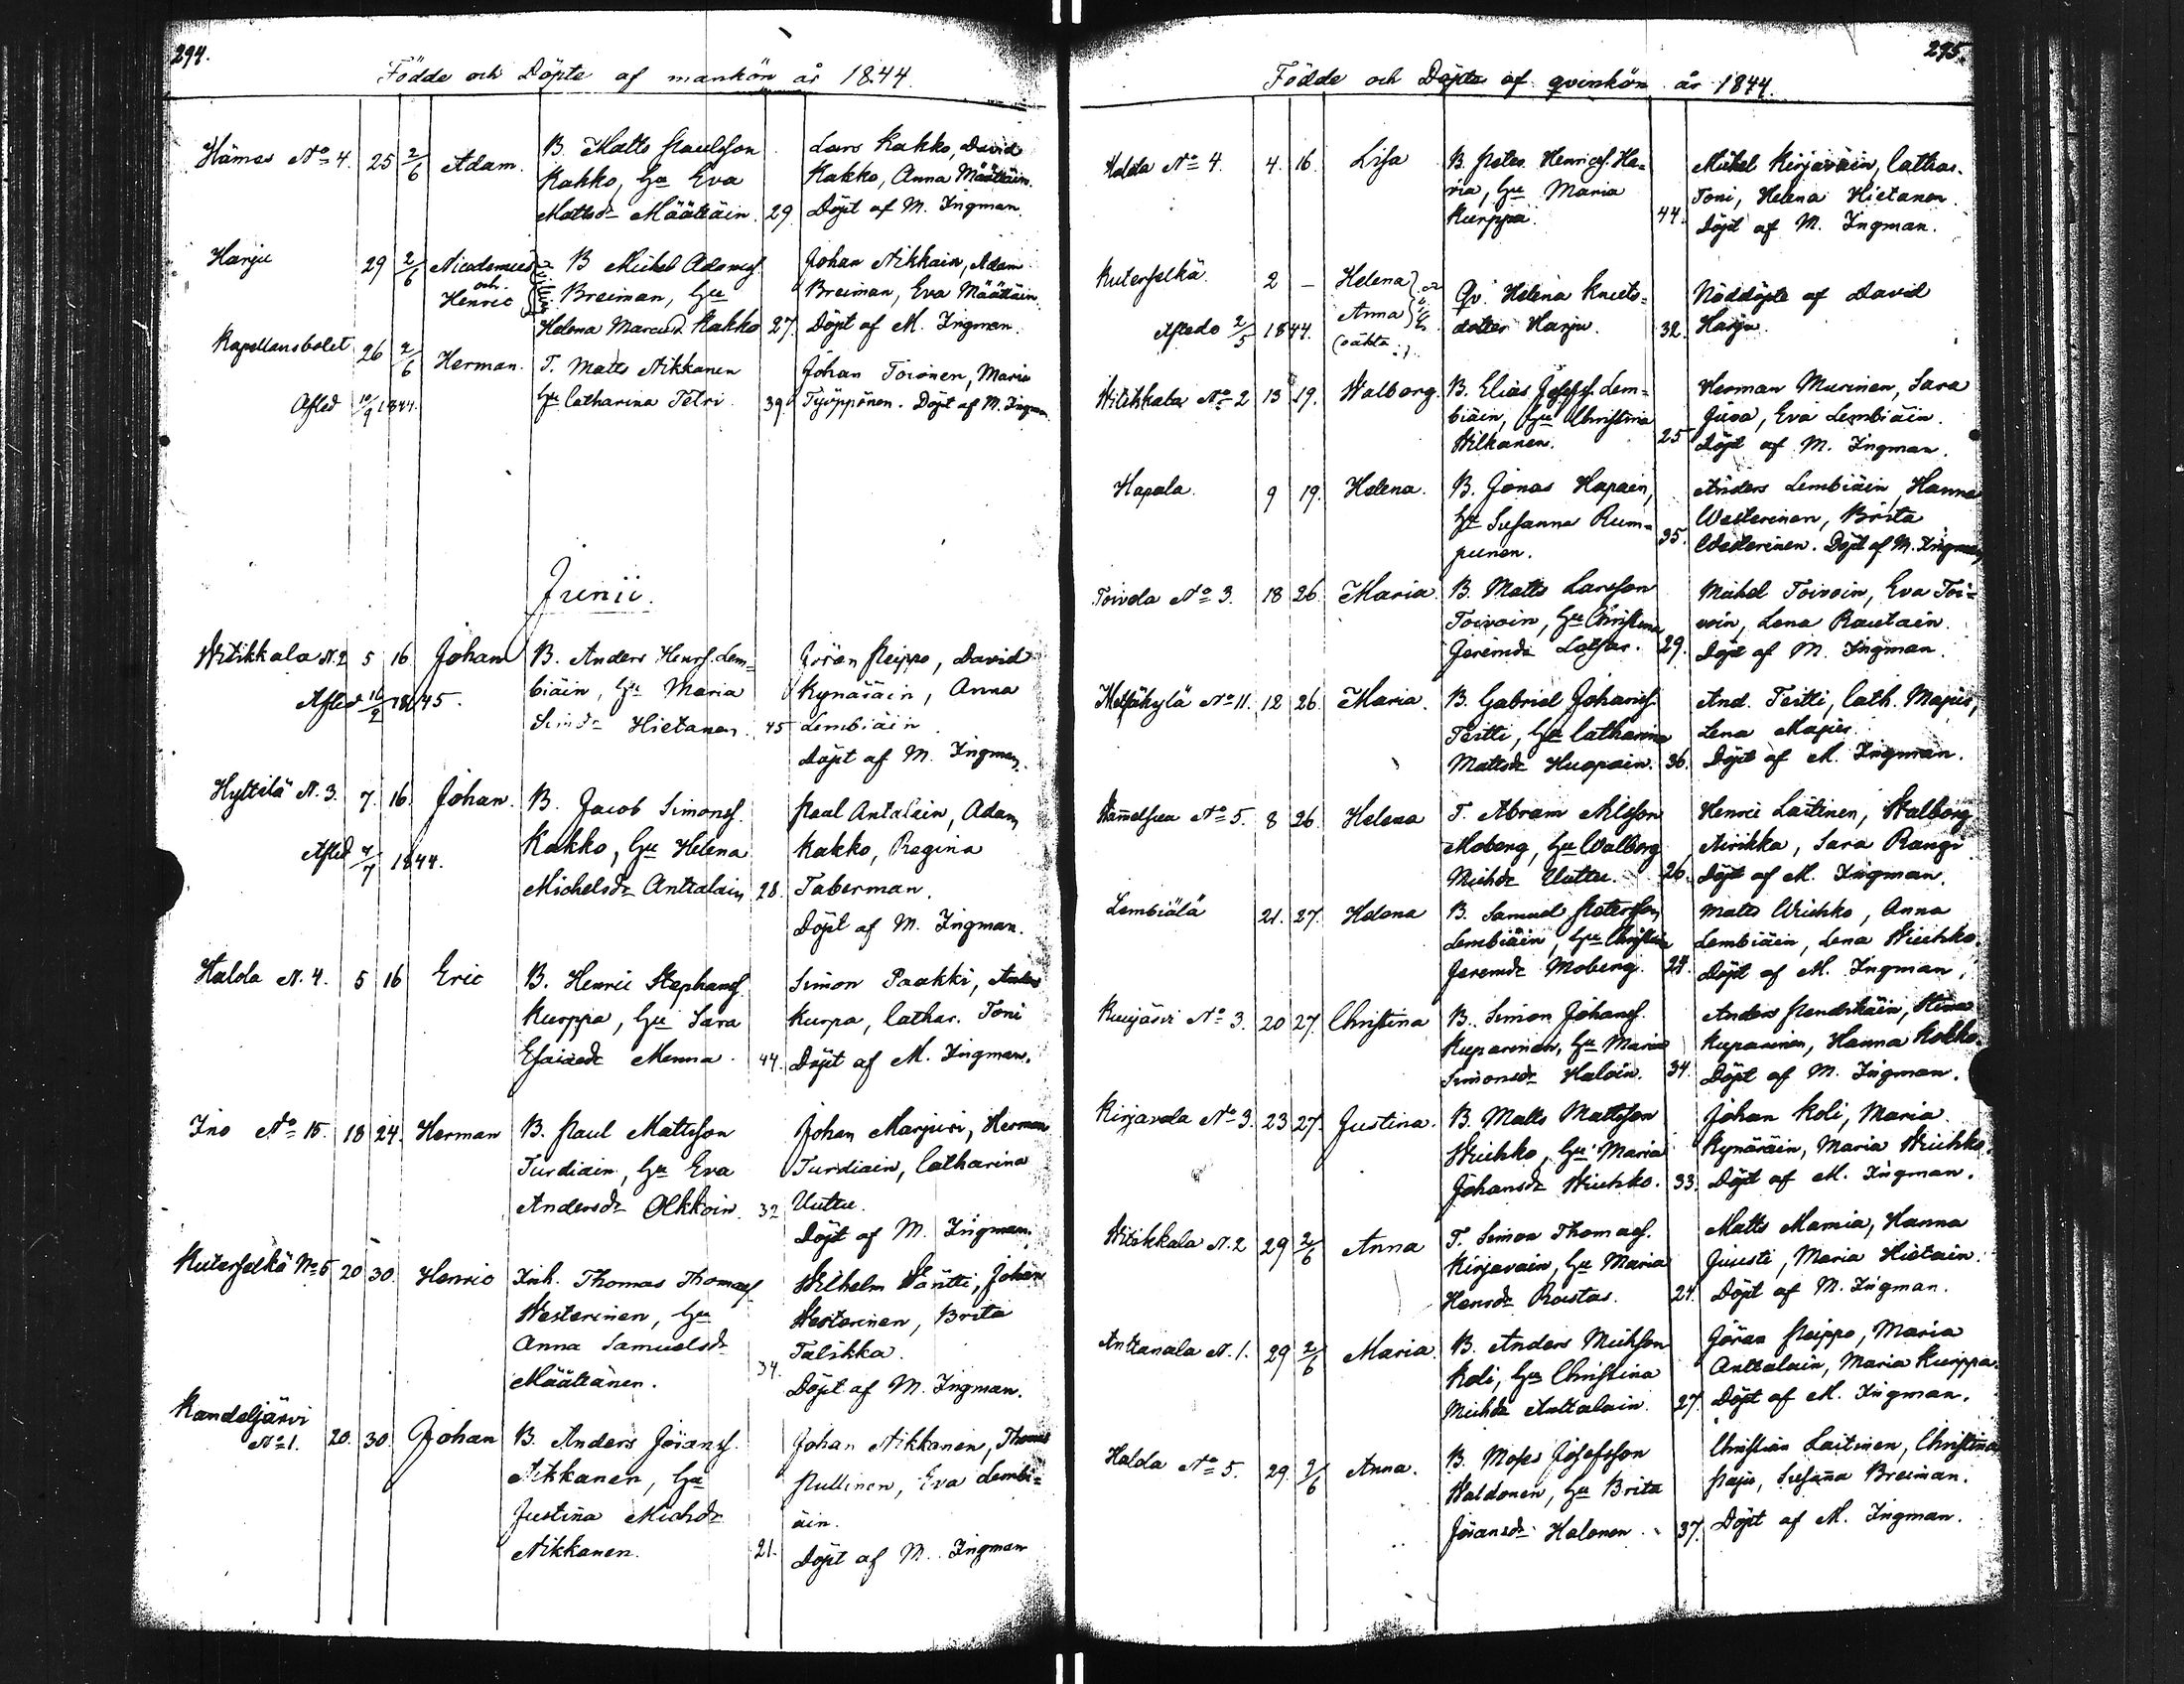 294.
Födde och Döpte af mankön år 1844.
Hämes No 4. 25 2/6 Adam. B. Matts Paulsson Kakko, Hu Eva Mattsdr Määttäin. 29. Lars Kakko, David Kakko, Anna Määttäin. Döpt af M. Ingman.
Harju 29 2/6 Nicodemus och Henric B Michel Adamsf. Breiman, Hu Helena Marcusd. Kakko 27. Johan Nikkain, Adam Breiman, Eva Määttäin. Döpt af M. Ingman.
Kapellansbolet 26 2/6 Herman. T. Matts Nikkanen Hu Catharina Tetri. 39. Johan Toionen, Maria Työppönen. Döpt af M. Ingman
Afled 10/9 1844.
Junii.
Witikkala N. 2 5 16 Johan B. Anders Henrs. Lembiäin, Hu Maria Simdr Hietanen. 45 Jöran Peippo, David Kynäräin, Anna Lembiäin. Döpt af M. Ingman.
Afled 16/9 1845.
Hyttilä N. 3. 7. 16. Johan. B. Jacob Simonsf. Kakko, Hu Helena Michelsdr Anttalain 28. Paul Antalain, Adam Kakko, Regina Taberman. Döpt af M. Ingman.
Afled 4/7 1844.
Halola N. 4. 5 16 Eric B. Henric Stephansf. Kurppa, Hu Sara Esaiaedr Menna. 44. Simon Paakki, Anders Kurpa, Cathar. Toni Döpt af M. Ingman.
Ino No 15. 18 24. Herman B. Paul Mattsson Turdiain, Hu Eva Andersdr Olkkoin. 32 Johan Marjuri, Herman Turdiain, Catharina Uuttu. Döpt af M. Ingman.
Kuterselkä No 5 20 30. Henric Inh. Thomas Thomasf. Westerinen, Hu Anna Samuelsdr Määttänen. 34. Wilhelm Wäntti, Johan Westerinen, Brita Talikka. Döpt af M. Ingman.
Kandeljärvi No 1. 20. 30. Johan B. Anders Jöransf. Nikkanen, Hu Justina Michsdr Nikkanen. 21. Johan Nikkanen, Thomas Pullinen, Eva Lembiäin. Döpt af M. Ingman
295.
Födde och Döpte af qvinkön år 1844.
Halola No 4. 4. 16. Lisa B. Peter Henricsf. Haria, Hu Maria Kurppa. 44. Michel Kirjavain, Cathar. Toni, Helena Hietanen. Döpt af M. Ingman.
Kuterselkä. 2 – Helena Anna (oäkta) Qv. Helena Knuts-dotter Harju. 32. Nöddöpte af David Harju.
Aflado 2/5 1844.
Witikkala No 2 13 19. Walborg. B. Elias Josefsf. Lembiäin, Hu Christina Wilkanen. 25 Herman Murinen, Sara Juva, Eva Lembiäin. Döpt af M. Ingman.
Hapala. 9 19. Helena. B. Jonas Hapain, Hu Susanna Rumpunen. 35. Anders Lembiäin, Hanna Westerinen, Brita Westerinen. Döpt af M. Ingman
Toivola No 3. 18 26. Maria. B. Matts Larsson Toivoin, Hu Christina Jeremdr Latsar. 29. Michel Toivoin, Eva Toivoin, Lena Rautain. Döpt af M. Ingman.
Metsäkylä No 11. 12 26. Maria. B. Gabriel Johansf. Teitti, Hu Catharina Mattsdr Huopain. 36. And. Teitti, Cath. Majus, Lena Majus. Döpt af M. Ingman.
Wammelsuu No 5. 8 26 Helena T. Abram Nilsson Moberg, Hu Walborg Michdr Uuttu. 26. Henric Laitinen, Walborg Nirikka, Sara Rangi Döpt af M. Ingman.
Lembiälä 21. 27. Helena B. Samuel Petersson Lembiäin, Hu Christina Jeremdr Moberg. 24. Matts Wiehko, Anna Lembiäin, Lena Wiehko. Döpt af M. Ingman.
Kuujärvi No 3. 20 27. Christina B. Simon Johansf. Kuparinen, Hu Maria Simonsdr Haloin. 34. Anders Pendikäin, Stina Kuparinen, Hanna Kokko. Döpt af M. Ingman.
Kirjavala No 3. 23 27. Justina. B. Matts Mattsson Wiehko, Hu Maria Johansdr Wiehko. 33. Johan Koli, Maria Kynäräin, Maria Wiehko. Döpt af M. Ingman.
Witikkala N. 2 29 2/6 Anna T. Simon Thomasf. Kirjavain, Hu Maria Hensdr Rastas. 24. Matts Mamia, Hanna Juusti, Maria Hietain. Döpt af M. Ingman.
Anttanala N. 1. 29 2/6 Maria. B. Anders Michsson Koli, Hu Christina Michdr Anttalain. 27. Jöran Peippo, Maria Anttalain, Maria Kurppa. Döpt af M. Ingman.
Halola No 5. 29. 2/6 Anna. B. Moses Josefsson Waldonen, Hu Brita Jöransdr Halonen. 37. Christian Laitinen, Christina Paju, Susanna Breiman. Döpt af M. Ingman.